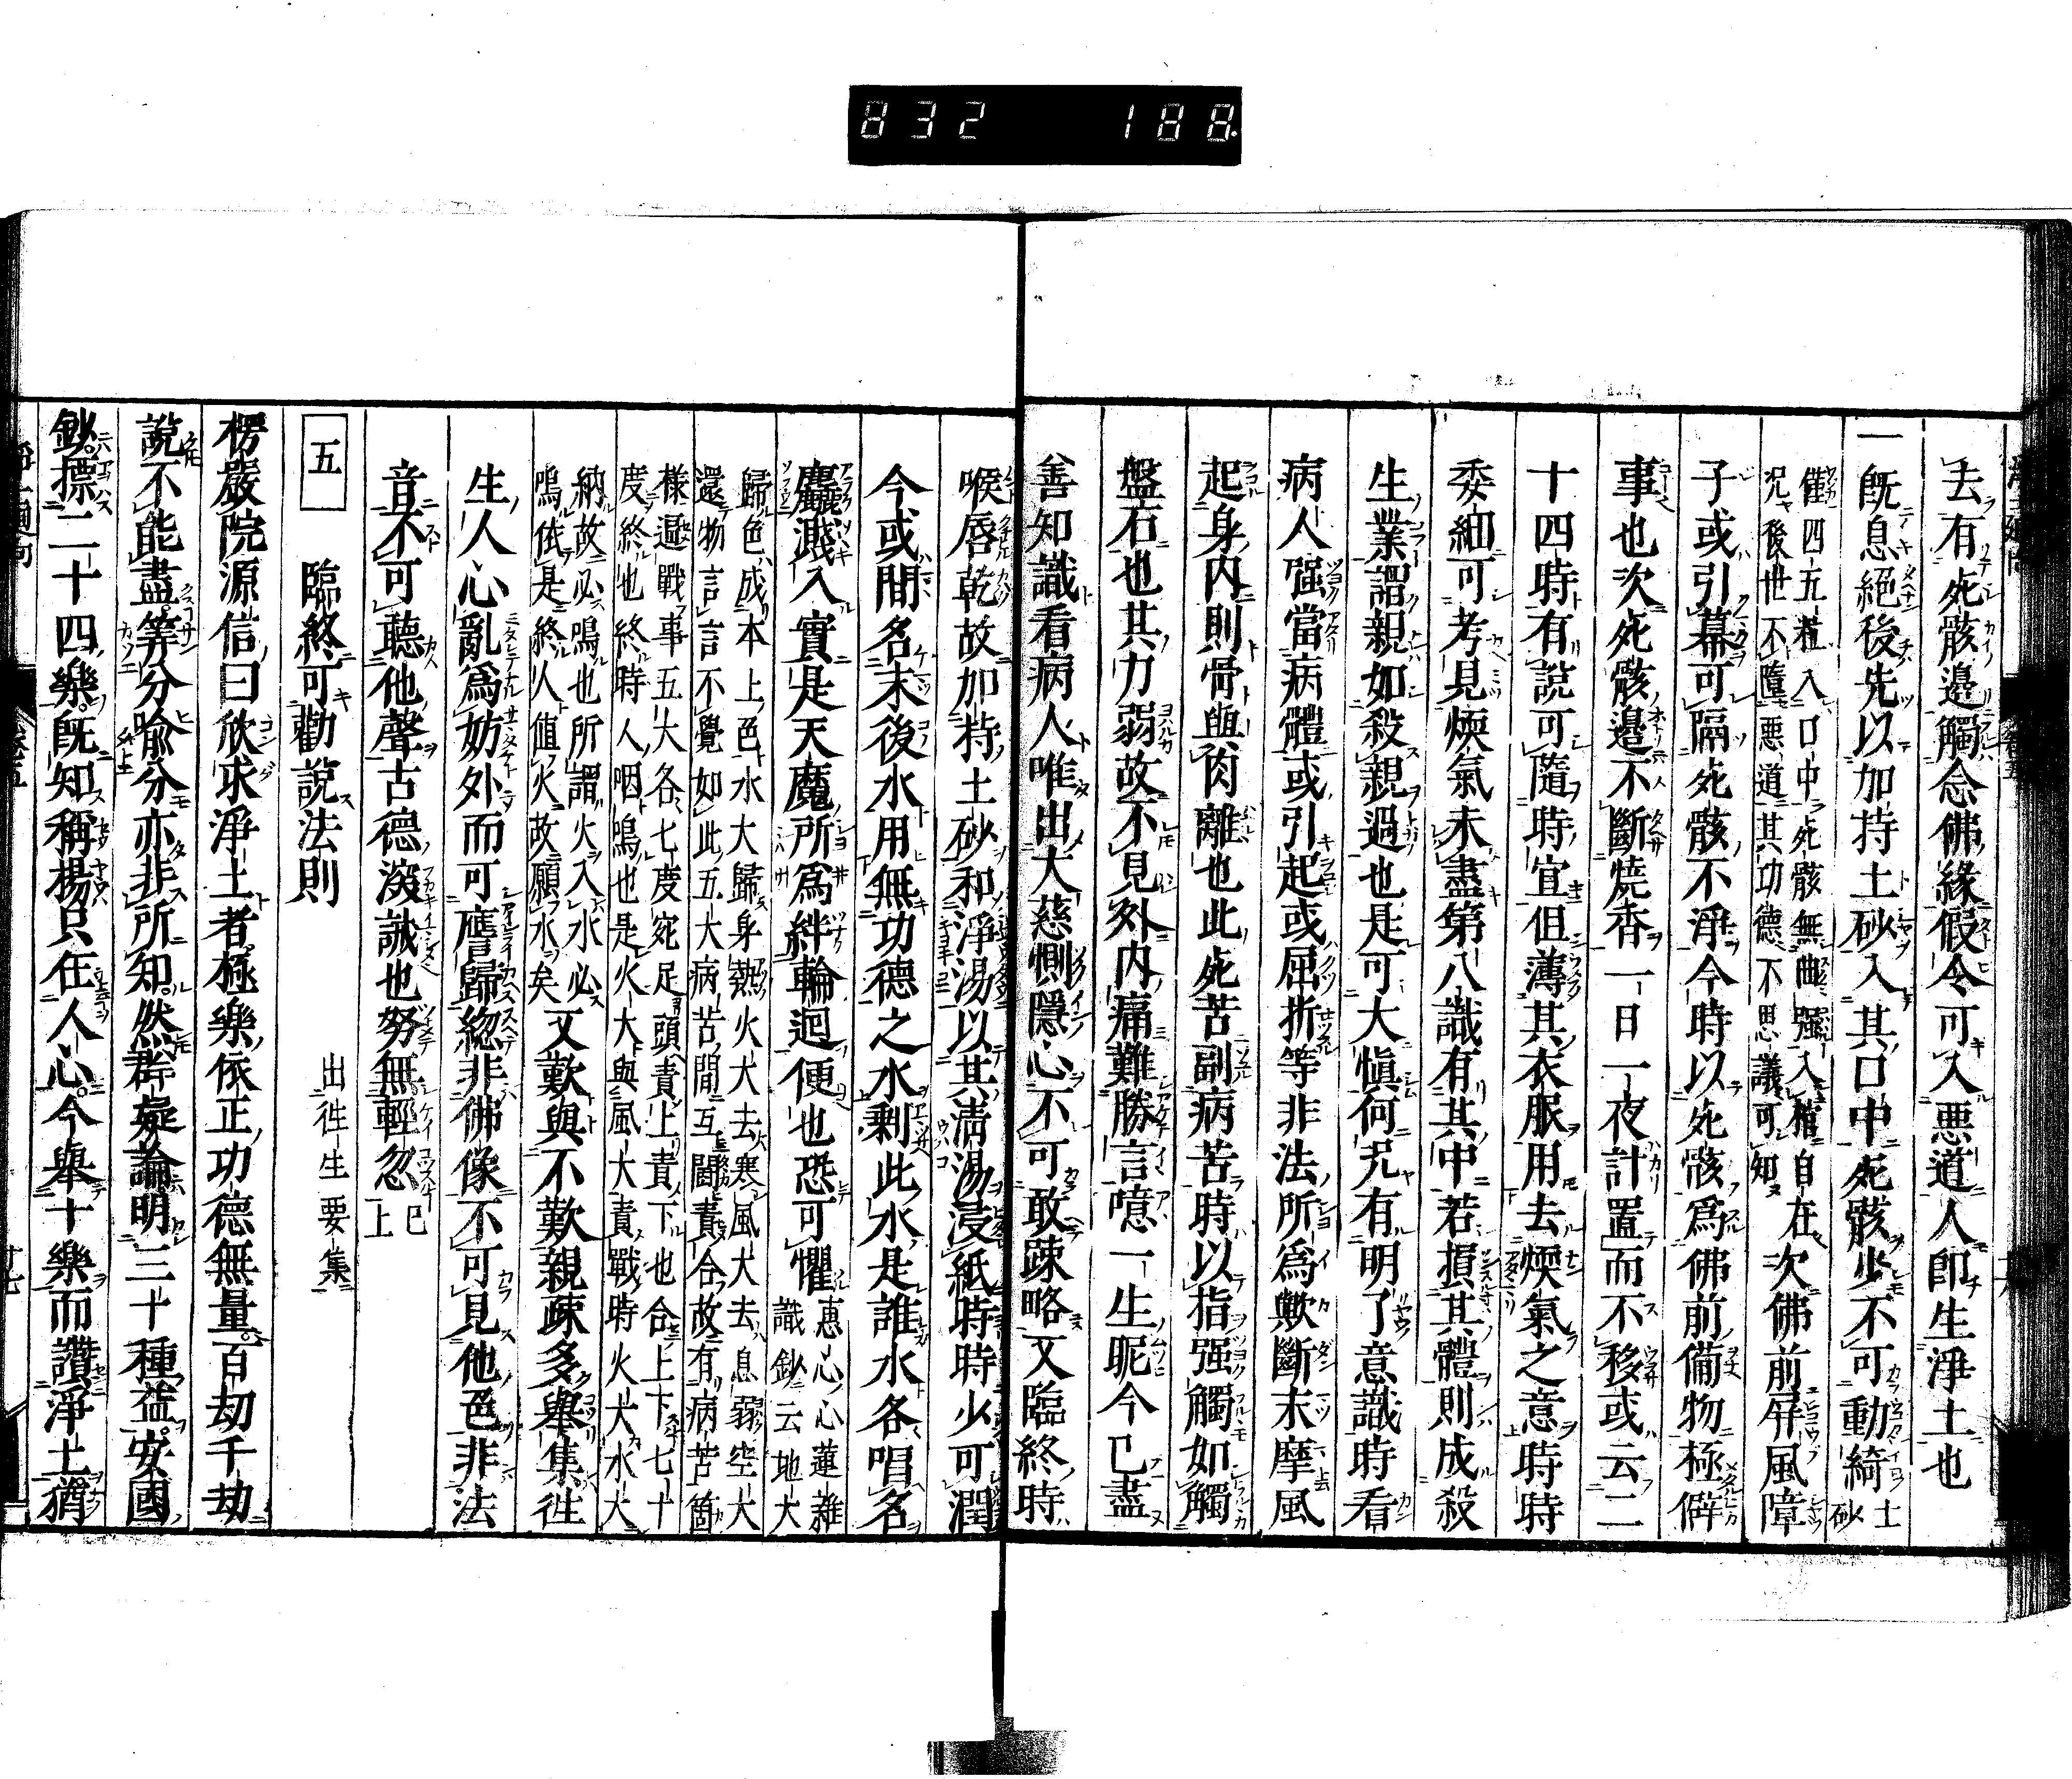 832 188
去有死骸邊觸念佛緣假令可入悪道人即生淨土也
一既息絕後先以加持土砂入其口中死骸少不可動綺土砂
僅四五粒入口中死骸無曲强入棺自在
呪後世不墮悪道其功德不思議可知
次佛前屏風障
子或引幕可隔死骸不淨今時以死骸爲佛前備物極僻
事也次死骸邊不斷燒香一日一夜計置而不移或云二
十四時有說可隨時宜但薄其衣服用去煗氣之意時時
委細可考見煗氣未盡第八識有其中若損其體則成殺
生業謂親如殺親過也是可大愼何况有明了意識時看
病人强當病體或引起或屈折等非法所爲歟斷末摩風
起身内則骨與肉離也此死苦副病苦時以指强觸如觸
盤石也其力弱故不見外内痛難勝言噫一生昵今已盡
善知識看病人唯出大慈惻隱心不可敢疎略又臨終時
喉唇乾故加持土砂和淨湯以其淸湯浸紙時時少可潤
今或間名末後水用無功德之水剩此水是誰水各唱名
麤濺入實是天魔所爲絆輪迴便也恐可懼
惠心心蓮雜
識鈔云地大
歸色成本上色水大歸身熱火大去寒風大去息弱空大
還物言言不覺如此五大病苦間互鬭責合故有病苦箇
樣過戰事五大各七度宛足頭責上責下也合上下七十
度終也終時人咽鳴也是火大與風大責戰時火大水大
納故必鳴也所謂火入水必
鳴依是終人値火故願水矣
又歎與不歎親疎多擧集徃
生人心亂爲妨外而可應歸總非佛像不可見他色非法
音不可聽他聲古德深誡也努無輕忽
已上
五 臨終可勸說法則 出徃生要集
楞嚴院源信曰欣求淨土者極樂依正功德無量百劫千劫
說不能盡等分喩分亦非所知然群疑論明三十種益安國
鈔摽二十四樂既知稱揚只在人心今擧十樂而讚淨土猶